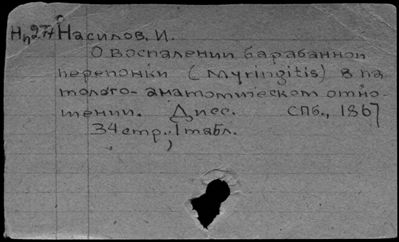 Нп274 Насилов, И.
О воспалении барабанной
перепонки (Myringitis) в па
толого-анатомическом отно-
шении. Дисс. СПб., 1867
34 стр., 1 табл.